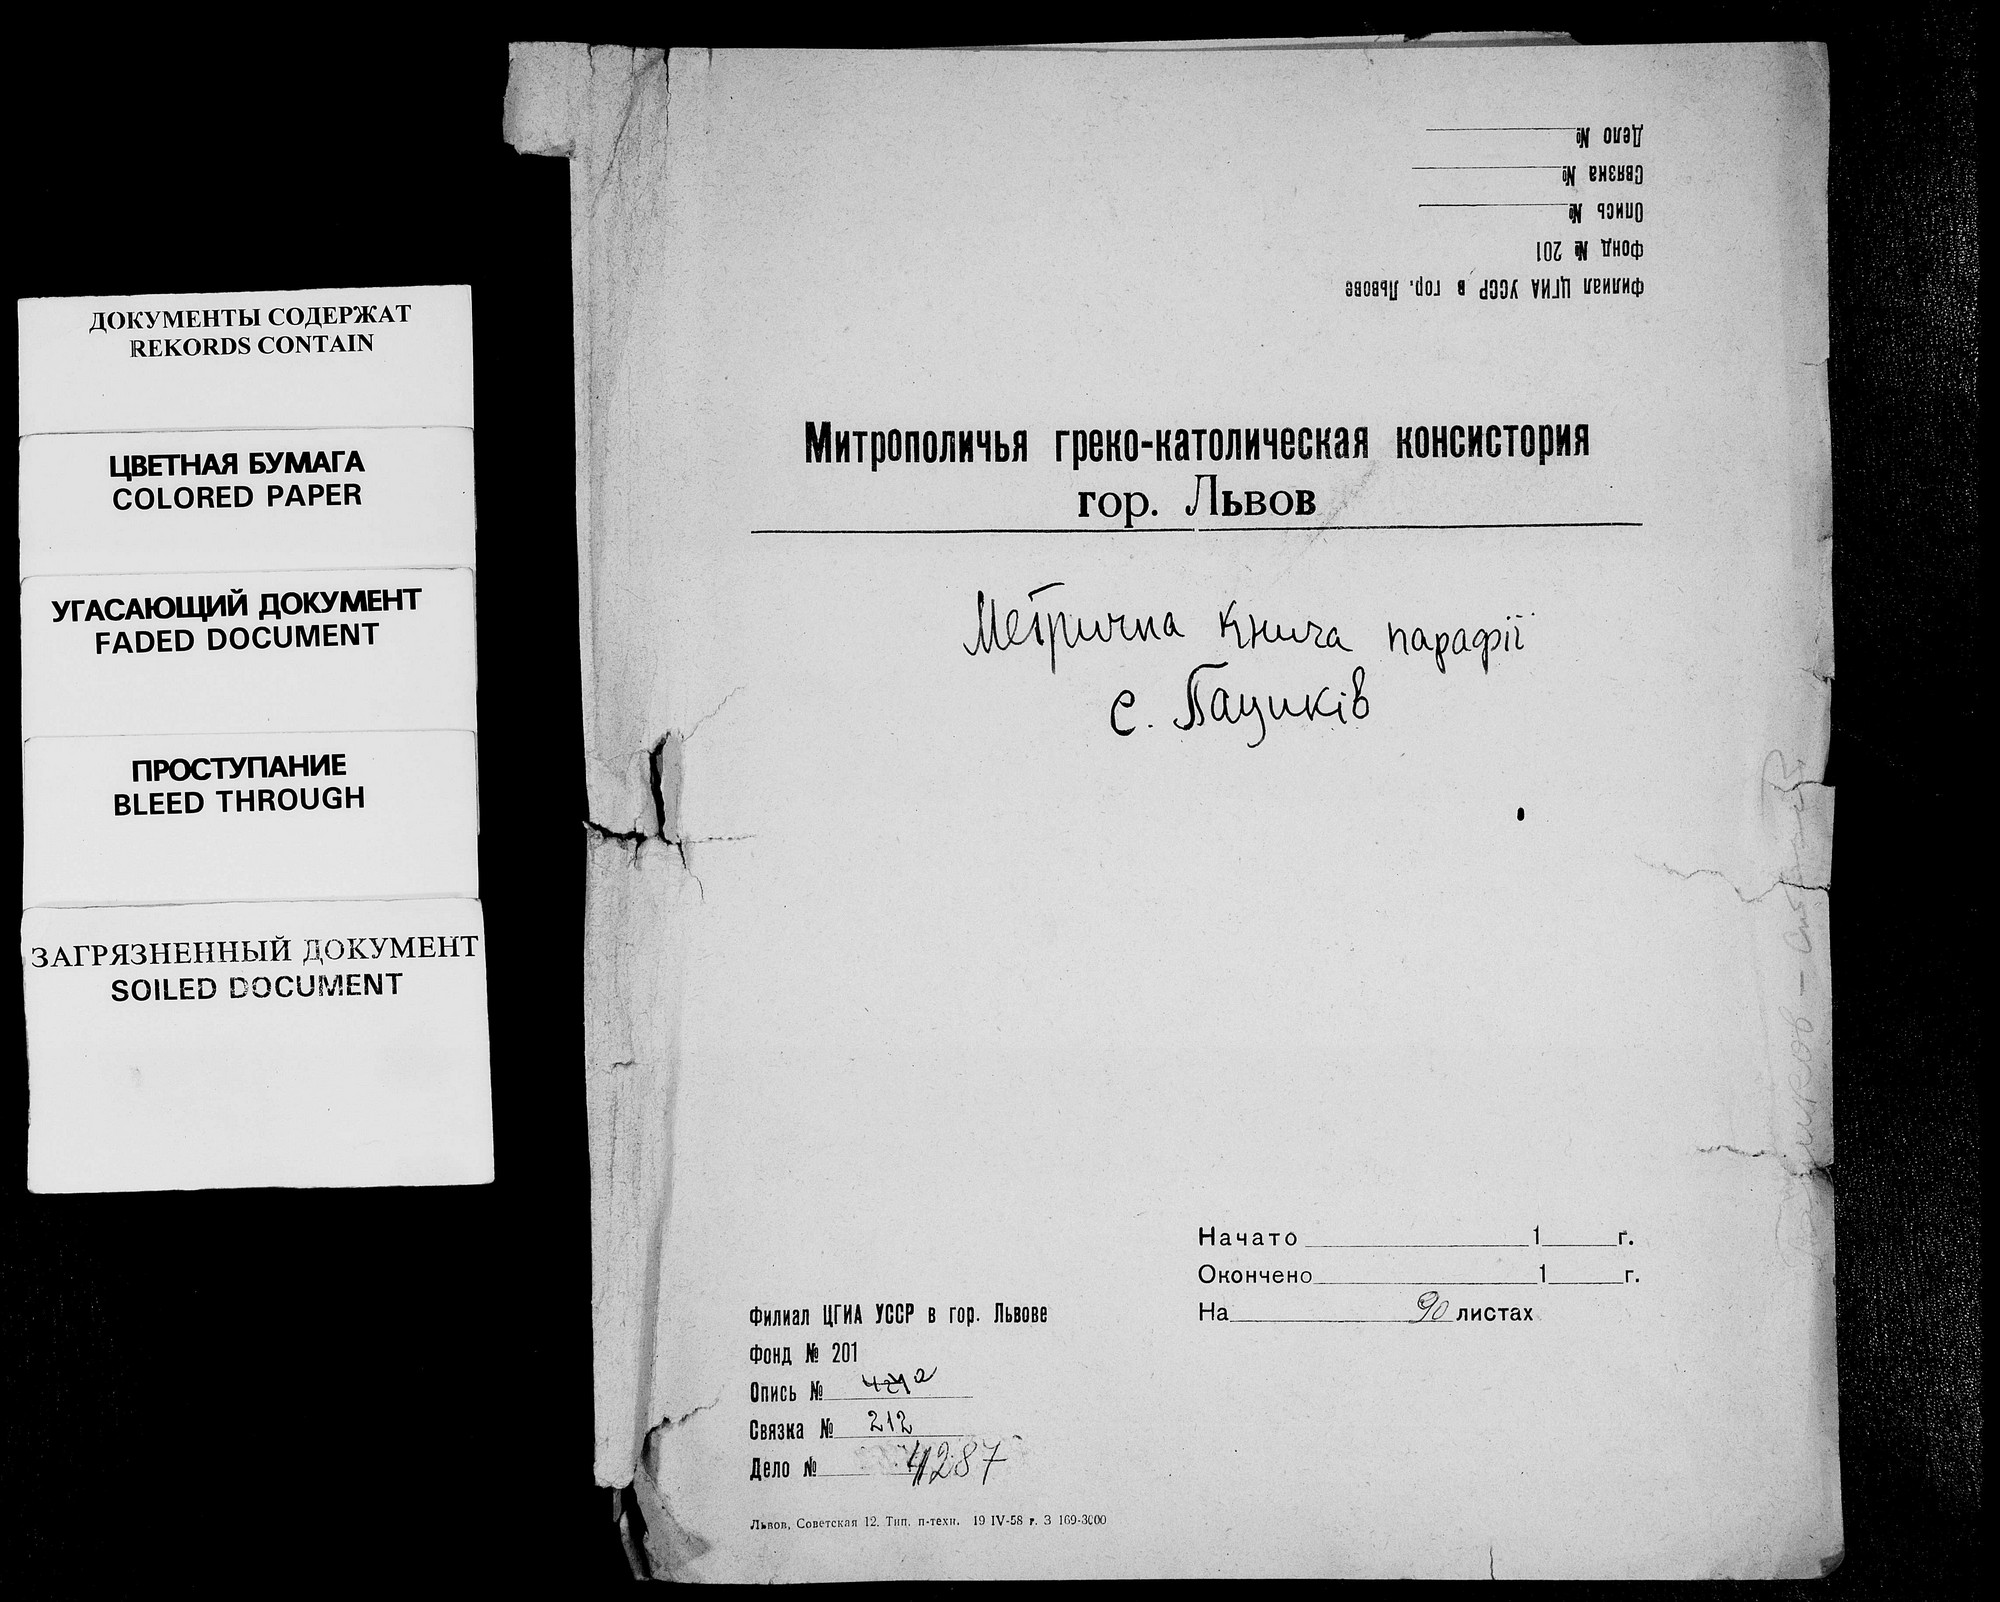 ДОКУМЕНТЫ СОДЕРЖАТ
REKORDS CONTAIN
ЦВЕТНАЯ БУМАГА
COLORED PAPER
УГАСАЮЩИЙ ДОКУМЕНТ
FADED DOCUMENT
ПРОСТУПАНИЕ
BLEED THROUGH
ЗАГРЯЗНЕННЫЙ ДОКУМЕНТ
SOILED DOCUMENT
Дело №
Связка №
Опись №
Фонд № 201
Филиал ЦГИА УССР в гор. Львове
Митрополичья греко-католическая консистория
гор. Львов
Метрична книга парафії
с. Пациків
Начато 1 г.
Окончено 1 г.
На 90 листах
Филиал ЦГИА УССР в гор. Львове
Фонд № 201
Опись №
Связка № 212
Дело № 4287
Львов, Советская 12. Тип. п-техн. 19 IV-58 г. З 169-3000